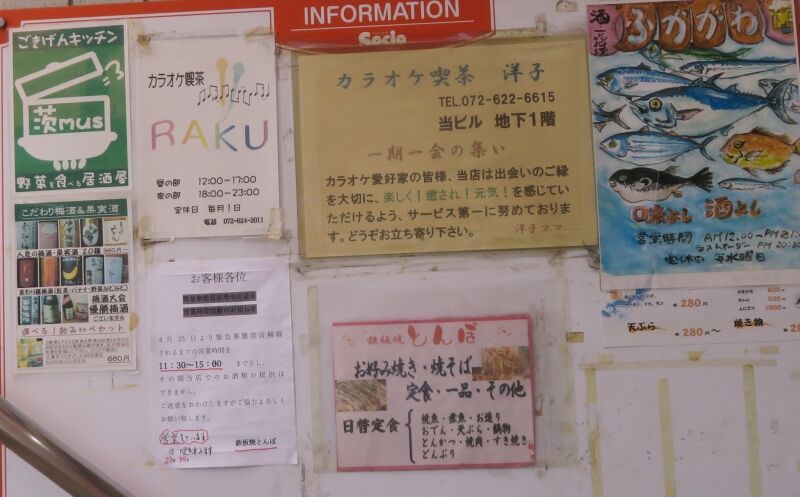 INFORMATION
Socio
ごきげんキッチン
茨mus
野菜を食べる居酒屋
こだわり梅酒&果実酒
人気の梅酒・果実酒20種
梅酒大会
優勝梅酒
ございます
選べる!飲み比べセット
680円
カラオケ喫茶
RAKU
昼の部 12:00〜17:00
夜の部 18:00〜23:00
定休日 毎月1日
電話 072-624-2011
カラオケ喫茶 洋子
TEL.072-622-6615
当ビル 地下1階
一期一会の集い
カラオケ愛好家の皆様、当店は出会いのご縁
を大切に、楽しく!癒され!元気!を感じてい
ただけるよう、サービス第一に努めておりま
す。どうぞお立ち寄り下さい。
洋子ママ
酒
ふかがわ
口味よし 酒よし
営業時間 AM12:00〜PM21:
ラストオーダー PM 20:30
定休日 毎水曜日
280円
400円
500円
1000円
280円
天ぷら 280円〜 焼き物
お客様各位
4月25日より緊急事態宣言解除
されるまでの営業時間を
11:30〜15:00 までとし、
その間当店でのお酒類の提供は
できません。
ご迷惑をおかけしますがご協力よろしく
お願い致します。
営業しています
鉄板焼とんぼ
鉄板焼 とんぼ
お好み焼き・焼そば
定食・一品・その他
日替定食
焼魚・煮魚・お造り
おでん・天ぷら・鍋物
とんかつ・焼肉・すき焼き
どんぶり